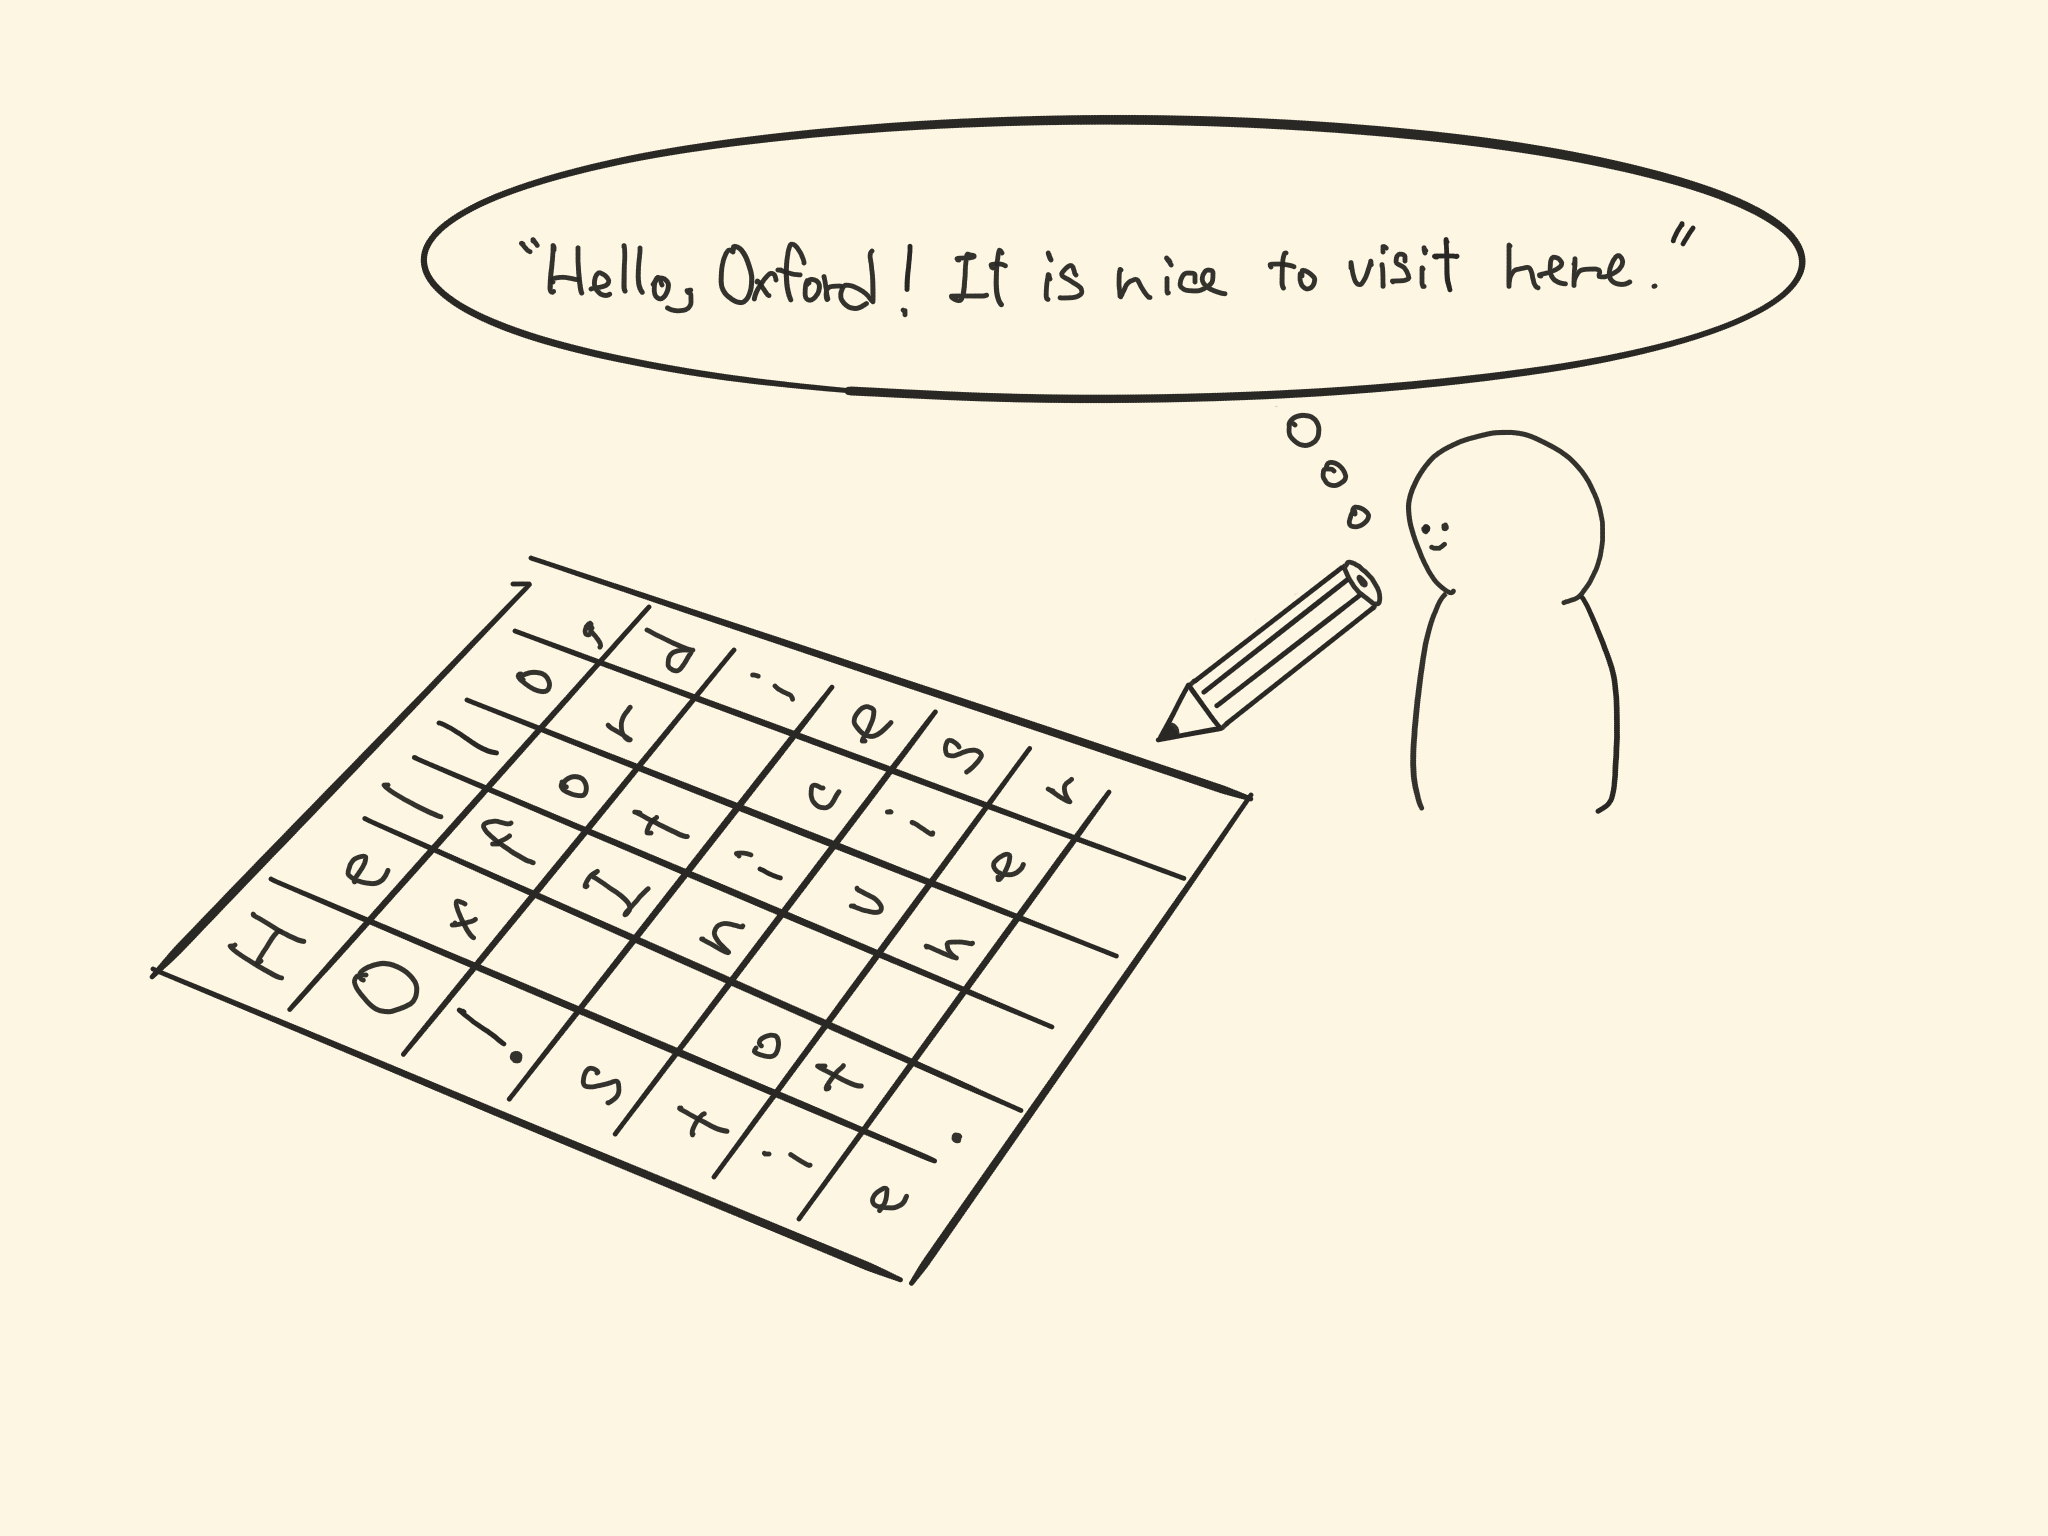 "Hello, Oxford! It is nice to visit here."
H e l l o ,
O x f o r d
! I t i
s n i c e
t o v i s
i t h e r
e .